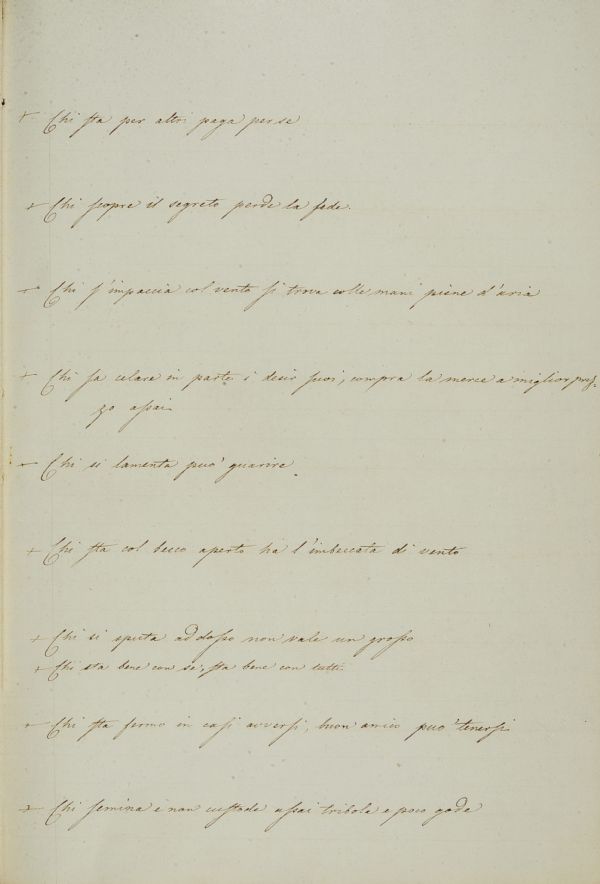 + Chi sta per altri paga per se
+ Chi scopre il segreto perde la fede.
+ Chi s'impaccia col vento si trova colle mani piene d'aria
+ Chi sa celare in parte i desir suoi, compra la merce a miglior prez-
zo assai
+ Chi si lamenta può guarire.
+ Chi sta col becco aperto ha l'imbeccata di vento
+ Chi si sputa addosso non vale un grosso
+ Chi sta bene con se, sta bene con tutti.
+ Chi sta fermo in casi avversi, buon amico può tenersi
+ Chi semina e non custode assai tribola e poco gode